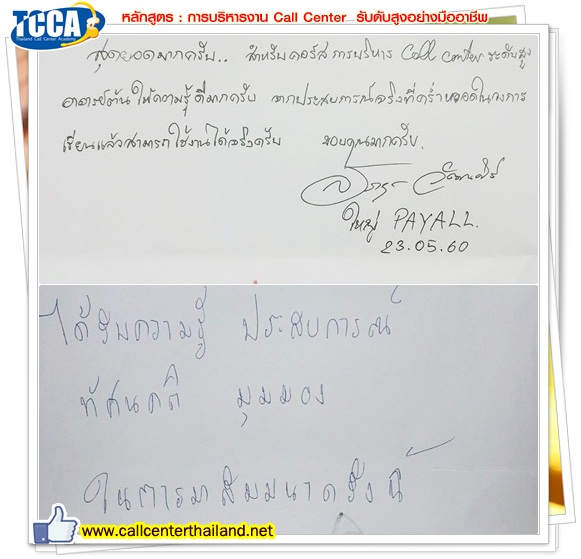 TCCA
Thailand Call Center Academy
หลักสูตร : การบริหารงาน Call Center รับดับสูงอย่างมืออาชีพ
สุดยอดมากครับ.. สำหรับคอร์ส การบริหาร Call Center ระดับสูง
อาจารย์ต้น ให้ความรู้ ดีมากครับ จากประสบการณ์จริงที่คร่ำหวอดในวงการ
เรียนแล้วสามารถใช้งานได้จริงครับ ขอบคุณมากครับ.
ใหญ่ PAYALL.
23.05.60
ได้รับความรู้ ประสบการณ์
ทัศนคติ มุมมอง
ในการมาสัมมนาครั้งนี้
www.callcenterthailand.net